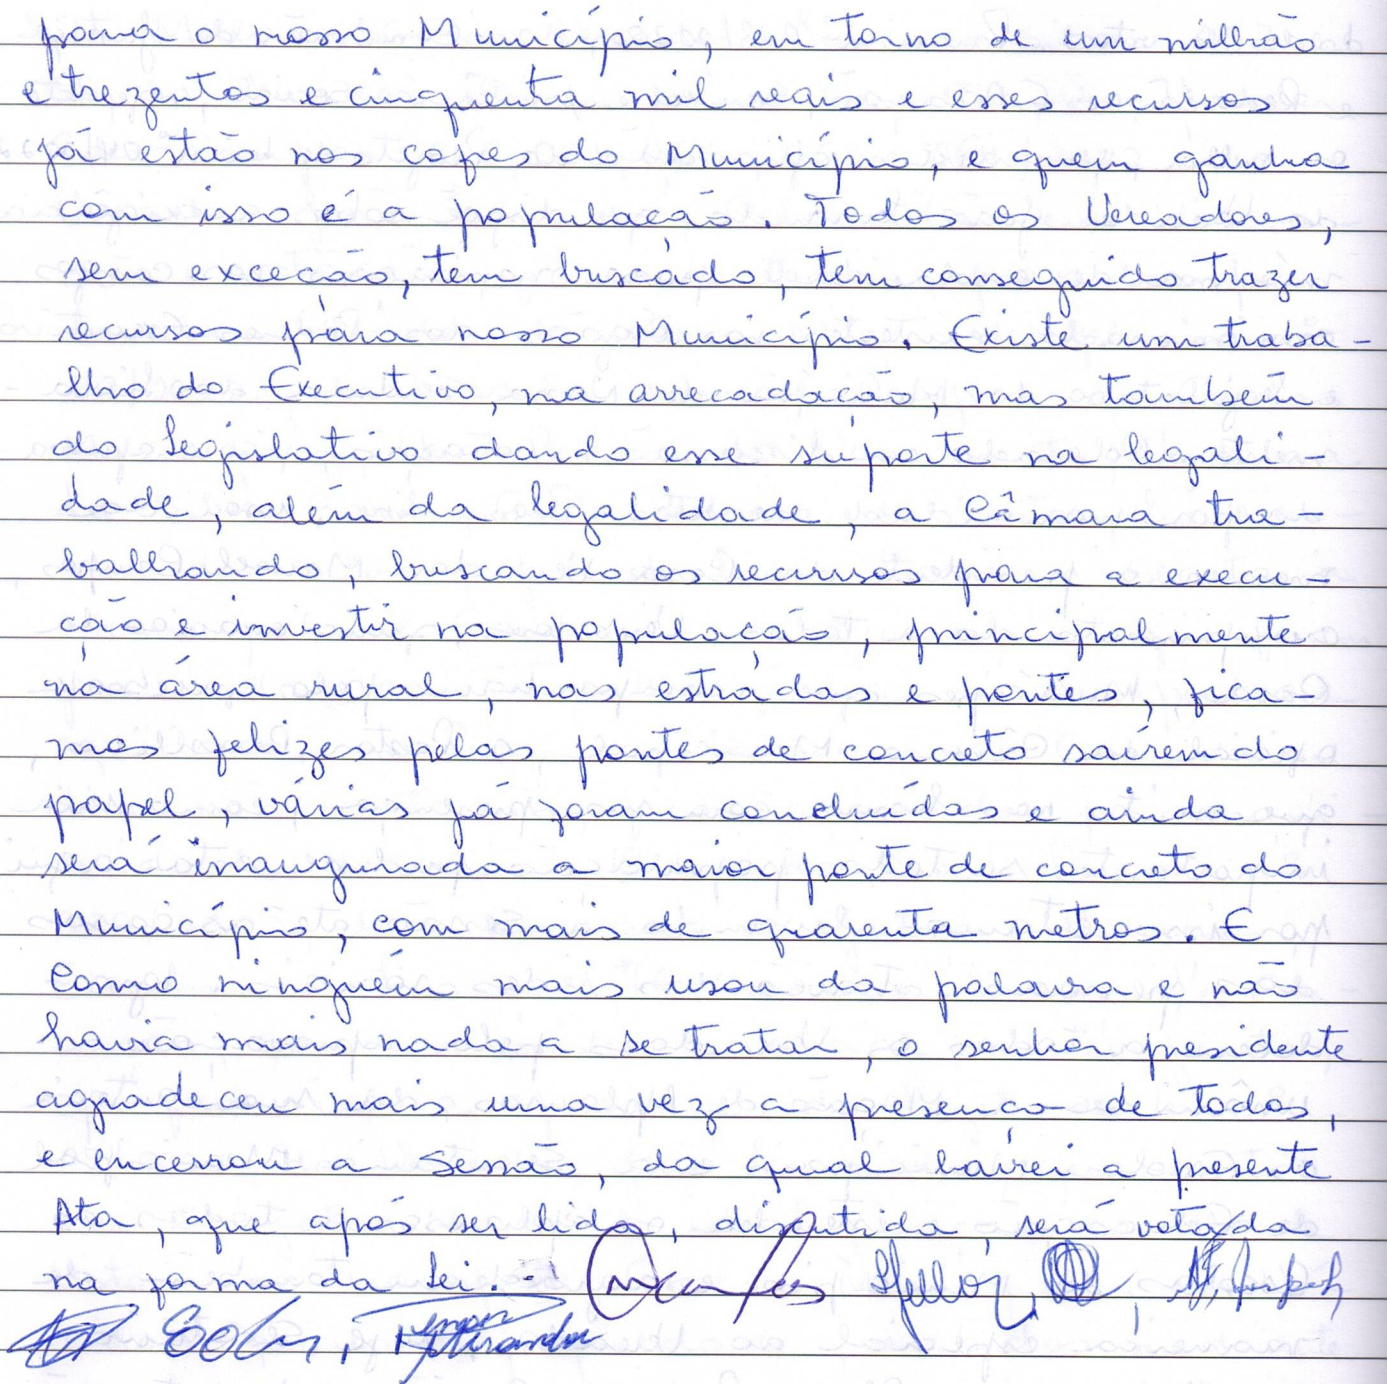 para o nosso Município, em torno de um milhão
e trezentos e cinquenta mil reais e esses recursos
já estão nos cofres do Município, e quem ganha
com isso é a população. Todos os Vereadores,
sem exceção, tem buscado, tem conseguido trazer
recursos para nosso Município. Existe um traba-
lho do Executivo, na arrecadação, mas também
do Legislativo dando esse suporte na legali-
dade, além da legalidade, a Câmara tra-
balhando, buscando os recursos para a execu-
ção e investir na população, principalmente
na área rural, nas estradas e pontes, fica-
mos felizes pelas pontes de concreto saírem do
papel, várias já foram concluídas e ainda
será inaugurada a maior ponte de concreto do
Município, com mais de quarenta metros. E
como ninguém mais usou da palavra e não
havia mais nada a se tratar, o senhor presidente
agradeceu mais uma vez a presença de todos,
e encerrou a Sessão, da qual lavrei a presente
Ata, que após ser lida, discutida, será votada
na forma da Lei.